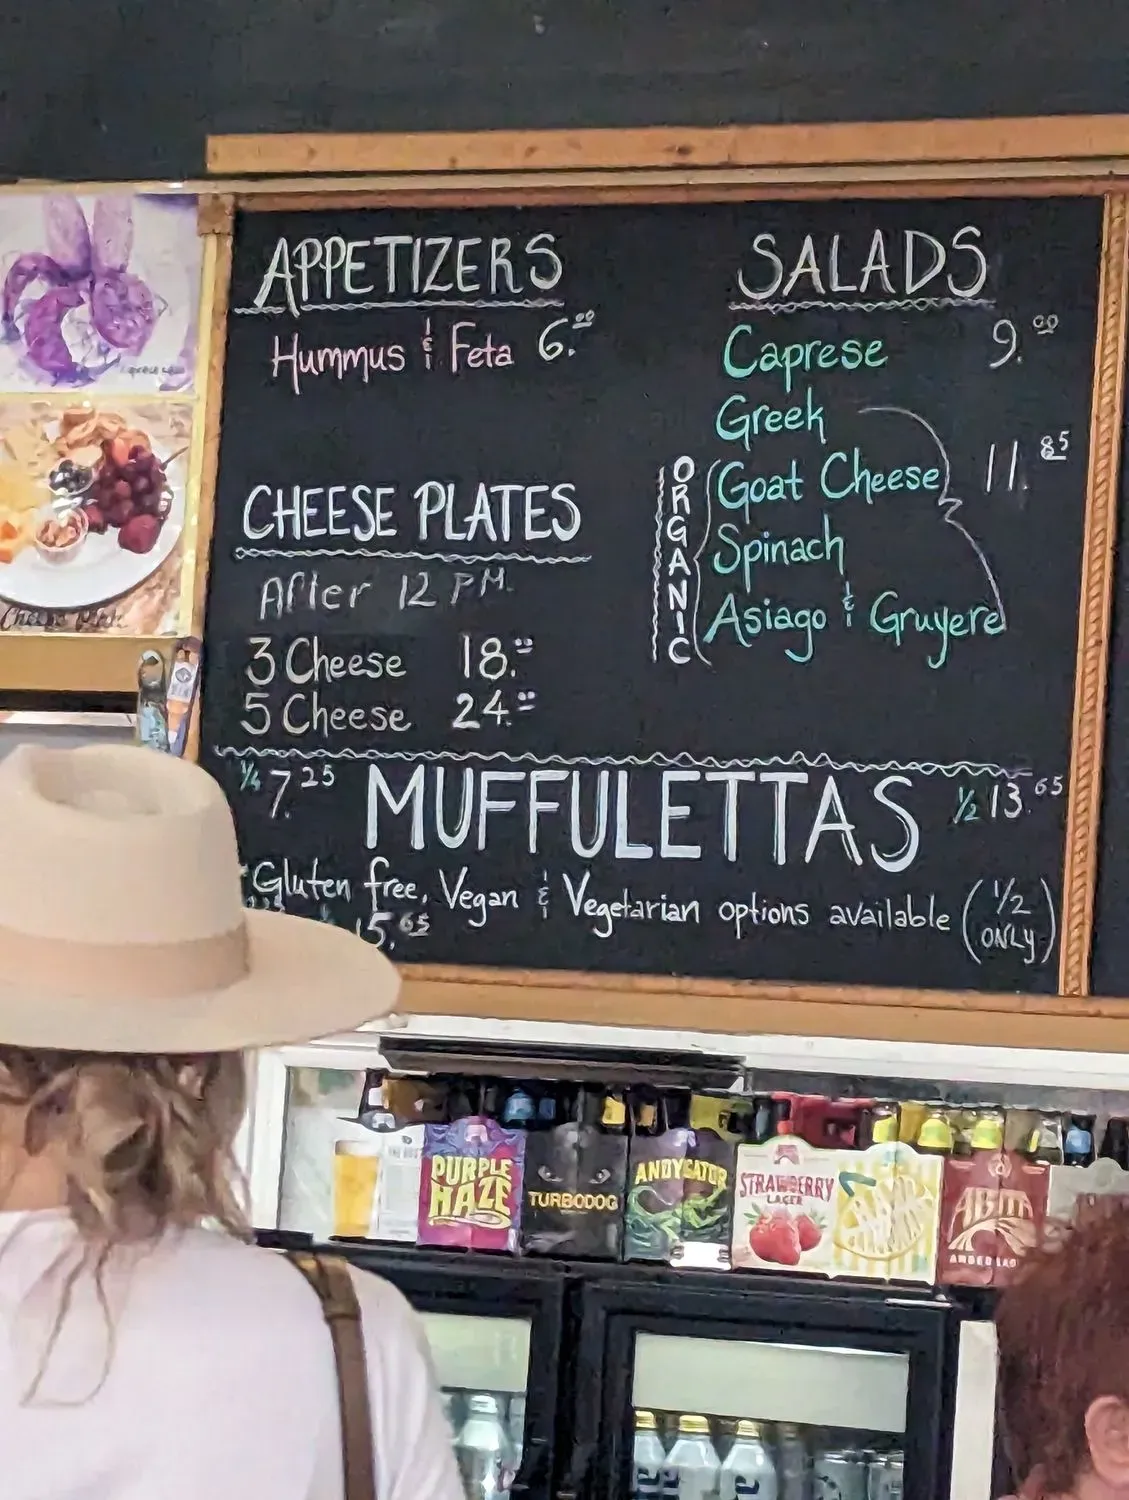 APPETIZERS
Hummus & Feta 6.00
CHEESE PLATES
After 12 PM.
3 Cheese 18.00
5 Cheese 24.00
SALADS
Caprese 9.00
Greek
Goat Cheese 11.85
Spinach
Asiago & Gruyere
ORGANIC
1/4 7.25 MUFFULETTAS 1/2 13.65
*Gluten free, Vegan & Vegetarian options available (1/2 ONLY)
15.65
Cheese Plate
PURPLE HAZE
TURBODOG
ANDYGATOR
STRAWBERRY
LAGER
ABITA
AMBER LAG